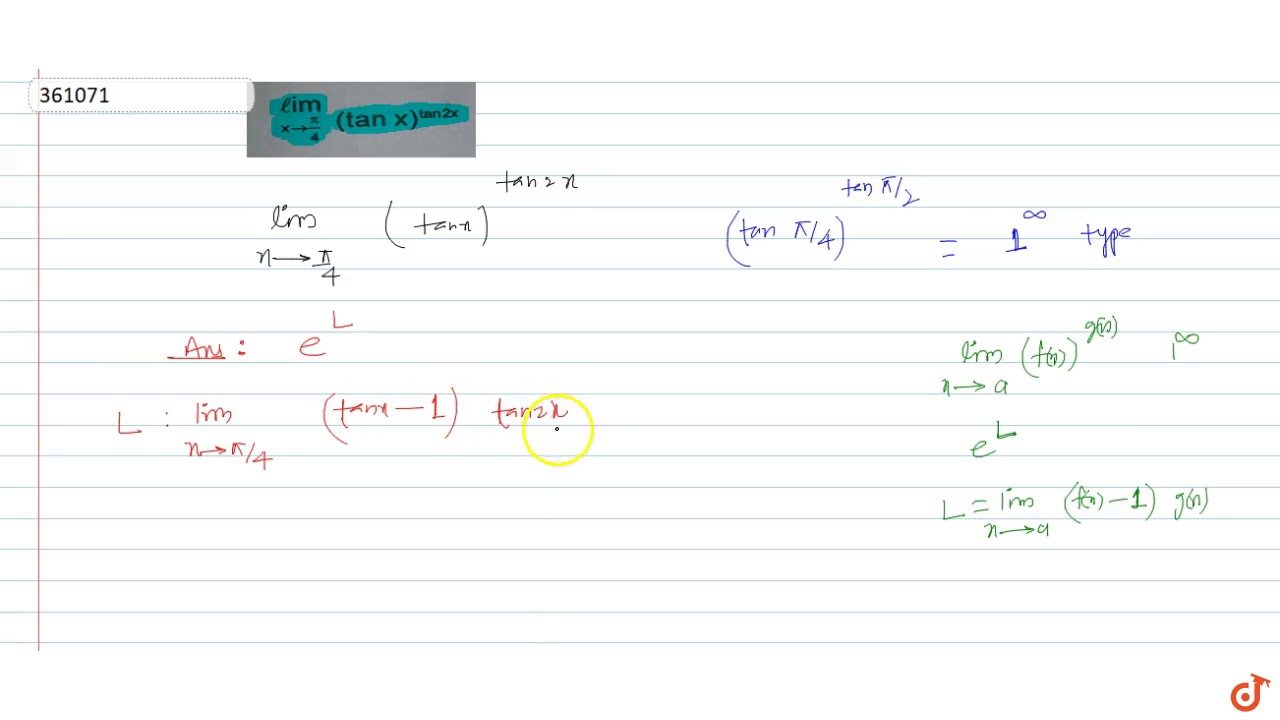 361071
lim x→π/4 (tan x)^tan2x
lim x→π/4 (tanx)^tan2x
(tan π/4)^tan π/2 = 1^∞ type
Ans: e^L
L : lim x→π/4 (tanx − 1) tan2x
lim x→a (f(x))^g(x) 1^∞
e^L
L = lim x→a (f(x) − 1) g(x)